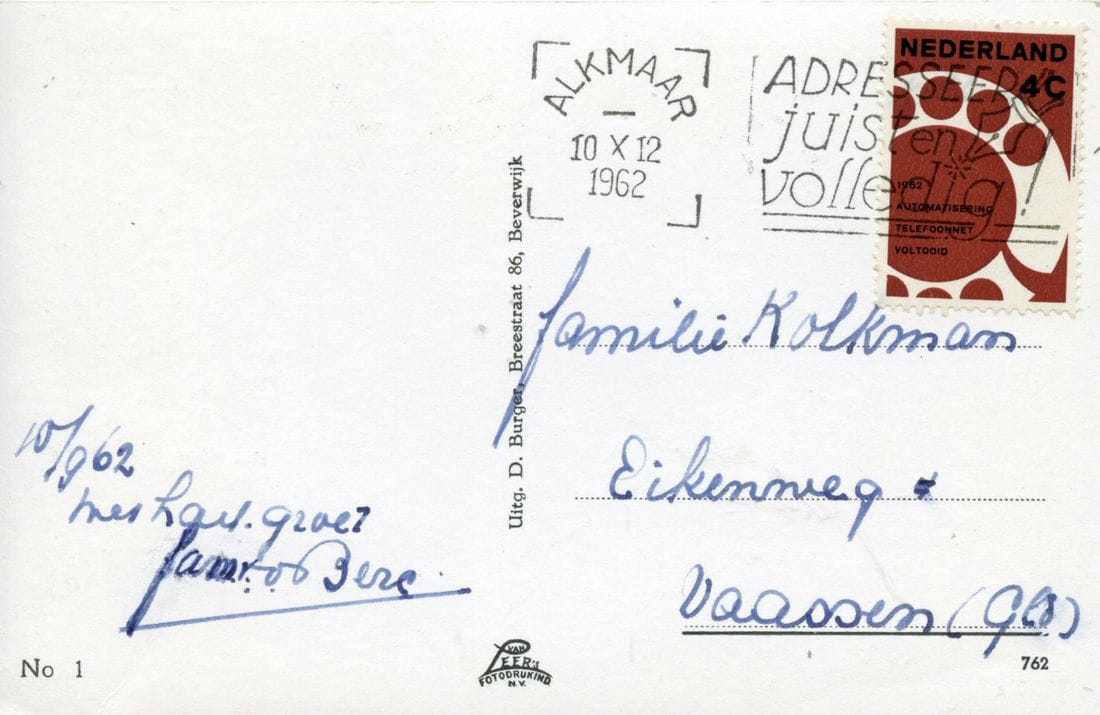 ALKMAAR
10 X 12
1962
ADRESSEER
juist en
volledig!
NEDERLAND
4C
1962
AUTOMATISERING
TELEFOONNET
VOLTOOID
Uitg. D. Burger, Breestraat 86, Beverwijk
familie Kolkman
Eikenweg
Vaassen (Gld)
10/9 62
met hart. groet
fam.
No 1
VAN
LEER's
FOTODRUKIND.
N.V.
762